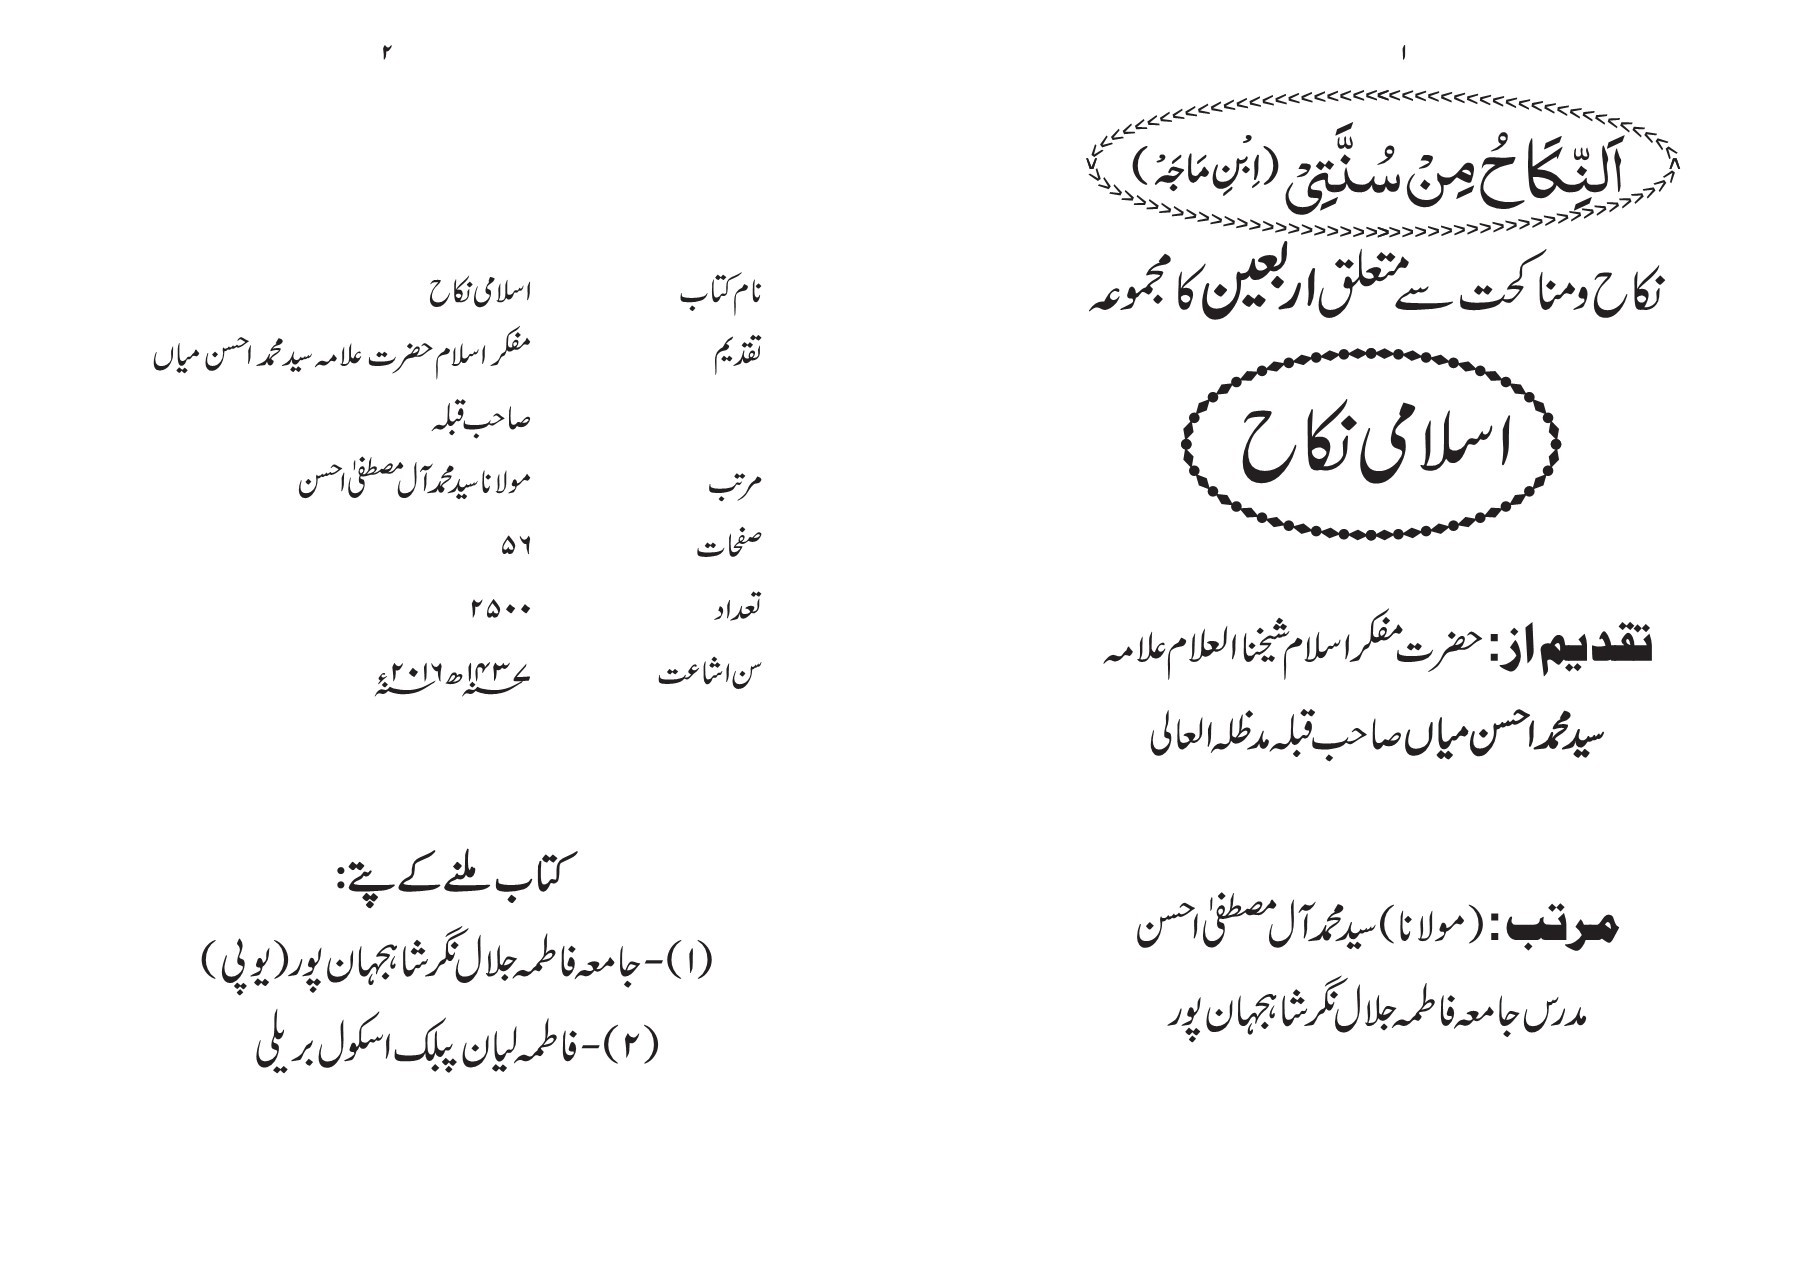 ۱
اَلنِّکَاحُ مِنْ سُنَّتِیْ (اِبْنِ مَاجَہْ)
نکاح و مناکحت سے متعلق اربعین کا مجموعہ
اسلامی نکاح
تقدیم از: حضرت مفکر اسلام شیخنا العلام علامہ
سید محمد احسن میاں صاحب قبلہ مدظلہ العالی
مرتب: (مولانا) سید محمد آل مصطفیٰ احسن
مدرس جامعہ فاطمہ جلال نگر شاہجہان پور
۲
نام کتاب اسلامی نکاح
تقدیم مفکر اسلام حضرت علامہ سید محمد احسن میاں
صاحب قبلہ
مرتب مولانا سید محمد آل مصطفیٰ احسن
صفحات ۵۶
تعداد ۲۵۰۰
سن اشاعت ۱۴۳۷ھ ۲۰۱۶ء
کتاب ملنے کے پتے:
(۱)-جامعہ فاطمہ جلال نگر شاہجہان پور (یوپی)
(۲)-فاطمہ لیان پبلک اسکول بریلی